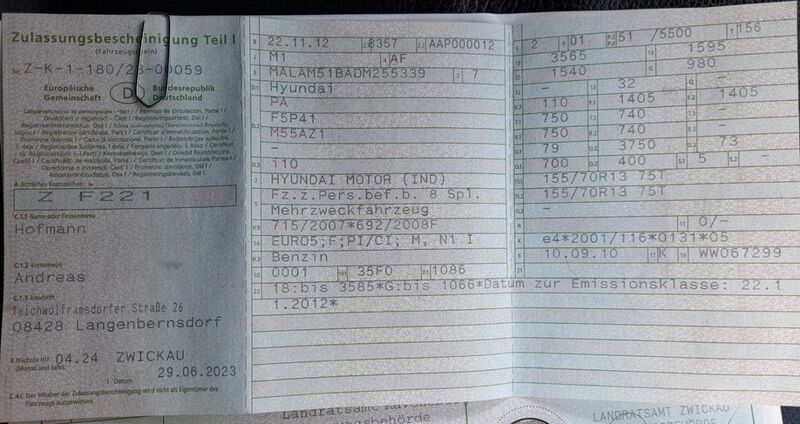 Zulassungsbescheinigung Teil I
(Fahrzeugschein)
Nr. Z-K-1-180/23-00059
Europäische Gemeinschaft
D
Bundesrepublik Deutschland
A Amtliches Kennzeichen
Z F221
C.1.1 Name oder Firmenname
Hofmann
C.1.2 Vorname(n)
Andreas
C.1.3 Anschrift
Teichwolframsdorfer Straße 26
08428 Langenbernsdorf
Nächste HU 04.24 ZWICKAU
(Monat und Jahr)
Datum 29.06.2023
C.4c Der Inhaber der Zulassungsbescheinigung wird nicht als Eigentümer des
Fahrzeugs ausgewiesen.
B 22.11.12 2.1 8357 2.2 AAP000012
J M1 4 AF
E MALAM51BADM255339 3 7
D.1 Hyundai
PA
D.2 F5P41
M55AZ1
-
D.3 i10
2 HYUNDAI MOTOR (IND)
5 Fz.z.Pers.bef.b. 8 Spl.
Mehrzweckfahrzeug
V.9 715/2007*692/2008F
14 EURO5;F;PI/CI; M, N1 I
P.3 Benzin
10 0001 14.1 35F0 P.1 1086
22 18:bis 3585*G:bis 1066*Datum zur Emissionsklasse: 22.1
1.2012*
L 2 9 01 51 /5500 T 156
18 3565 19 1595
20 1540 G 980
- 32 -
V.7 110 F.1 1405 F.2 1405
7.1 750 740 -
8.1 750 740 -
U.1 79 U.2 3750 U.3 73
O.1 700 O.2 400 S.1 5 S.2 -
15.1 155/70R13 75T
15.2 155/70R13 75T
15.3 -
R - 11 0/-
K e4*2001/116*0131*05
6 10.09.10 17 K 16 WW067299
21
Landratsamt
LANDRATSAMT ZWICKAU